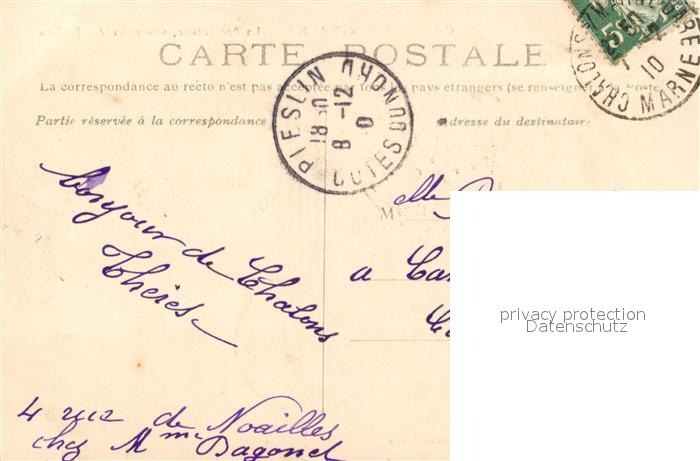 CARTE POSTALE
La correspondance au recto n'est pas acceptée par tous pays étrangers (se renseigner Poste
Partie réservée à la correspondance
adresse du destinataire
CHALONS S MARNE GARE
MARNE
10
5
PLESLIN
18 30
8 -12
COTES DU NORD
Bonjour de Chalons
Thérèse
4 rue de Noailles
chez Mme Dagonet
Mlle
M
a
privacy protection
Datenschutz